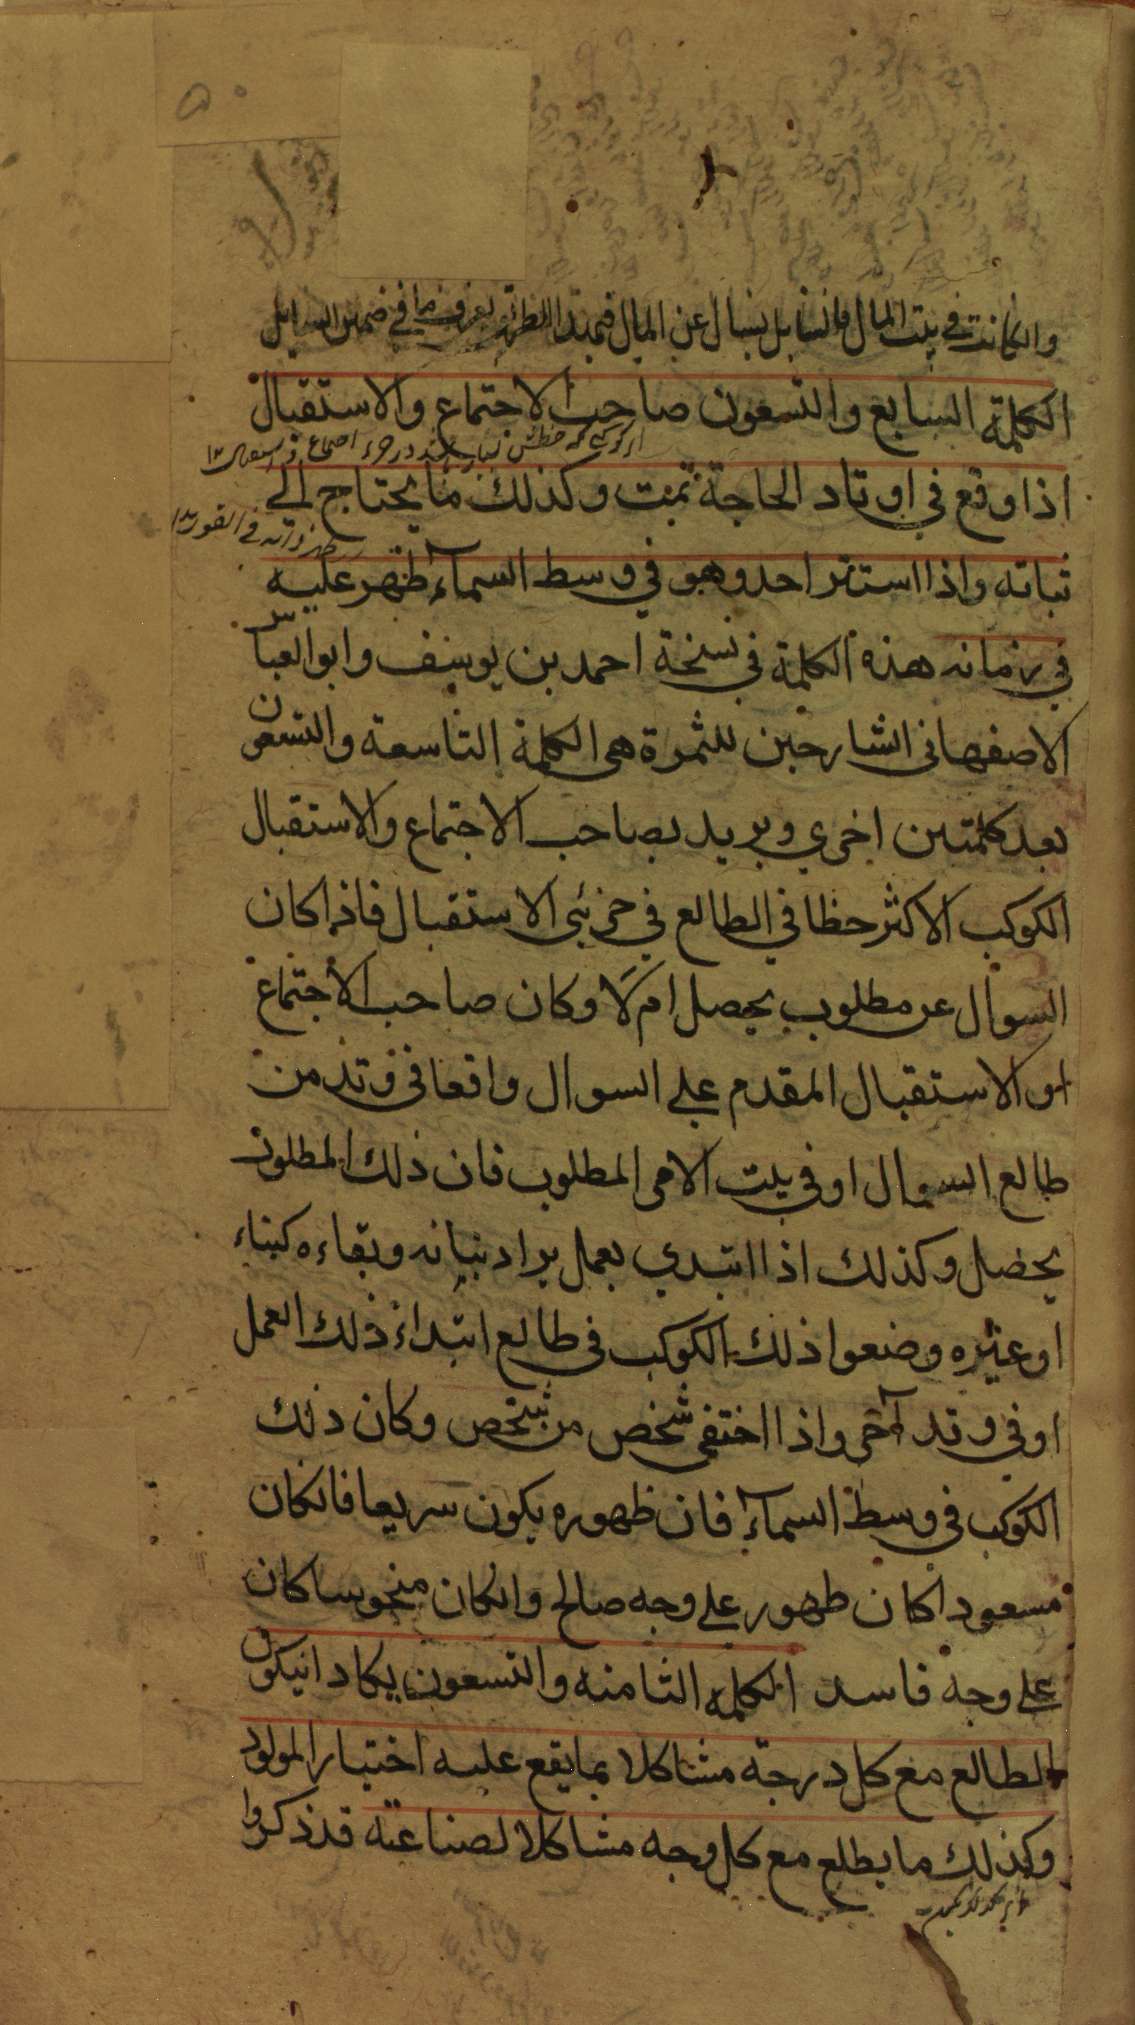 وانكانت في بيت المال فالسايل يسال عن المال فبهذا النظر يعرف ما في ضمير السايل
الكلمة السابع والتسعون صاحب الاجتماع والاستقبال
اذا وقع في اوتاد الحاجة تمت وكذلك ما يحتاج الى
ثباته واذا استتر احد وهو في وسط السمآء ظهر عليه
في زمانه هذه الكلمة في نسخة احمد بن يوسف وابو العباس
الاصفهاني الشارحين للثمرة هي الكلمة التاسعة والتسعون
بعد كلمتين اخري ويريد بصاحب الاجتماع والاستقبال
الكوكب الاكثر حظا في الطالع في جزئى الاستقبال فاذا كان
السوال عن مطلوب يحصل ام لا وكان صاحب الاجتماع
او الاستقبال المقدم على السوال واقعا في وتد من
طالع السوال او في بيت الامر المطلوب فان ذلك المطلوب
يحصل وكذلك اذا ابتدي بعمل يراد بنيانه وبقاءه كبناء
او غيره وضعوا ذلك الكوكب في طالع ابتداء ذلك العمل
او في وتد آخر واذا اختفى شخص من شخص وكان ذلك
الكوكب في وسط السمآء فان ظهوره يكون سريعا فانكان
مسعودا كان ظهور على وجه صالح وانكان منحوسا كان
على وجه فاسد الكلمة الثامنه والتسعون يكاد انيكون
الطالع مع كل درجة مشاكلا بما يقع عليه اختيار المولود
وكذلك ما يطلع مع كل وجه مشاكلا لصناعته قد ذكروا